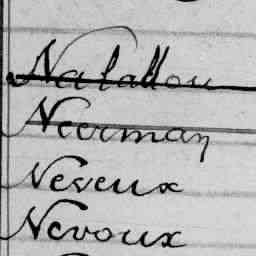 Natallou
Neerman
Neveux
Nevoux